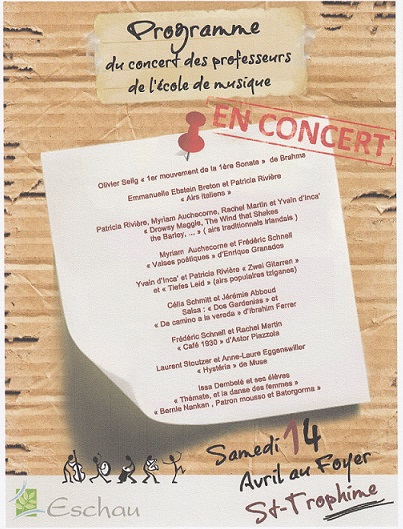 Programme
du concert des professeurs
de l'école de musique
EN CONCERT
Olivier Selig « 1er mouvement de la 1ère Sonate » de Brahms
Emmanuelle Ebstein Breton et Patricia Rivière
« Airs Italiens »
Patricia Rivière, Myriam Auchecorne, Rachel Martin et Yvain d'Inca'
« Drowsy Maggie, The Wind that Shakes
the Barley, ... » ( airs traditionnels irlandais )
Myriam Auchecorne et Frédéric Schnell
« Valses poétiques » d'Enrique Granados
Yvain d'Inca' et Patricia Rivière « Zwei Gitarren »
et « Tiefes Leid » (airs populaires tziganes)
Célia Schmitt et Jérémie Abboud
Salsa : « Dos Gardenias » et
« De camino a la vereda » d'Ibrahim Ferrer
Frédéric Schnell et Rachel Martin
« Café 1930 » d'Astor Piazzola
Laurent Stoutzer et Anne-Laure Eggenswiller
« Hystéria » de Muse
Issa Dembelé et ses élèves
« Thémate, et la danse des femmes »
« Bernle Nankan , Patron mousso et Batorgorma »
Samedi 14
Avril au Foyer
St-Trophime
Eschau